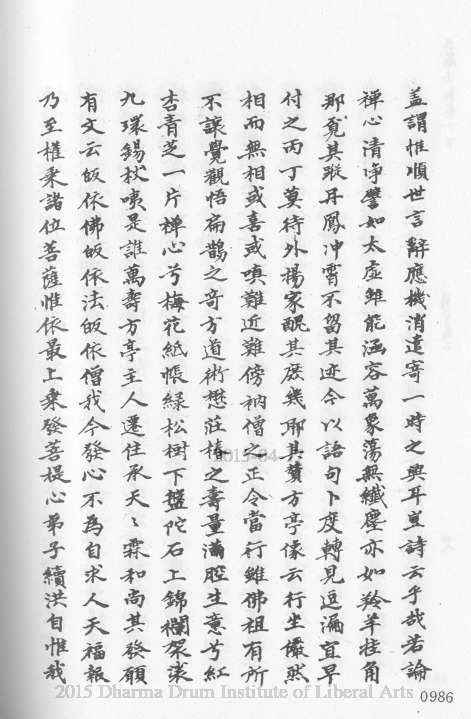 盖謂惟順世言辭應機消遣寄一時之興耳豈詩云乎哉若論
禪心清淨譬如太虛雖能涵容萬象蕩無纖塵亦如羚羊挂角
那覔其蹤丹鳳冲霄不留其迹今以語句卜度轉見逗漏宜早
付之丙丁莫待外楊家醜其庶幾耶其贊方亭像云行坐儼然
相而無相或喜或嗔難近難傍衲僧之正令當行雖佛祖有所
不讓覺觀悟扁鵲之奇方道術懋莊椿之壽量滿腔生意兮紅
杏青芝一片禅心兮梅花紙帳緑松樹下盤陀石上錦襴袈裟
九環錫杖咦是誰萬壽方亭主人遷住承天〻霖和尚其發願
有文云皈依佛皈依法皈依僧我今發心不為自求人天福報
乃至權乘諸位菩薩惟依最上乘發菩提心弟子續洪自惟我
2015-04
2015 Dharma Drum Institute of Liberal Arts
0986